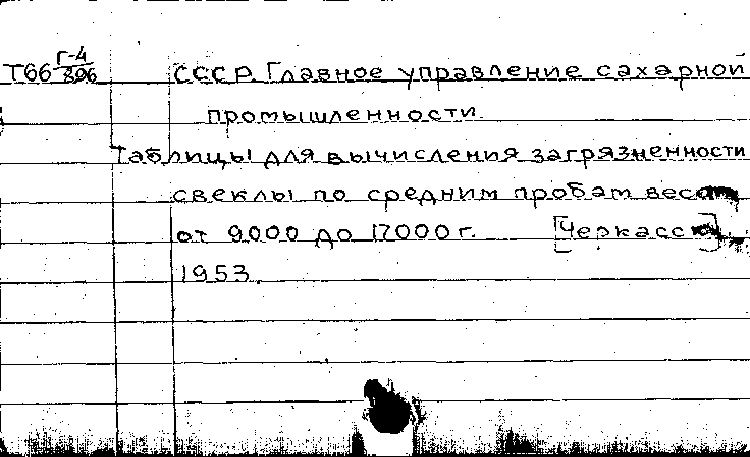 Т66 Г-4/896 СССР. Главное управление сахарной
промышленности.
Таблицы для вычисления загрязненности
свеклы по средним пробам весом
от 9000 до 17000 г. [Черкассы],
1953.